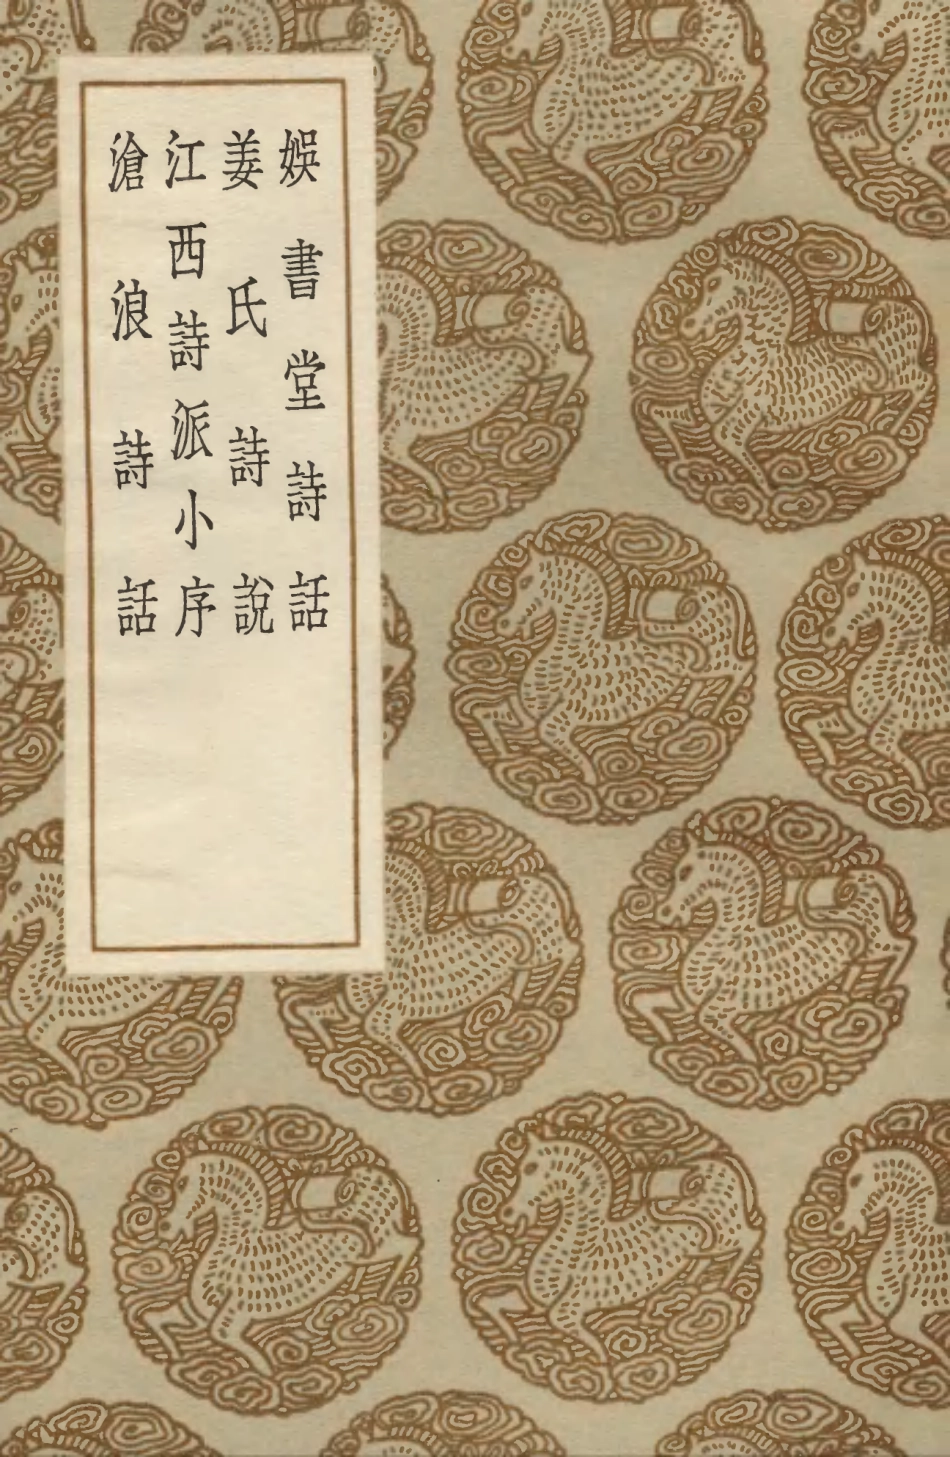 娛書堂詩話
姜氏詩說
江西詩派小序
滄浪詩話